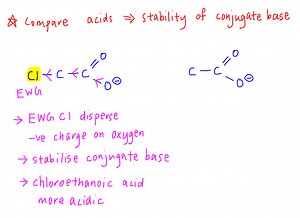 ☆ Compare acids ⇒ stability of conjugate base
Cl C C O O⊖
C C O O⊖
EWG
→ EWG Cl disperse
-ve charge on oxygen
→ stabilise conjugate base
→ chloroethanoic acid
more acidic